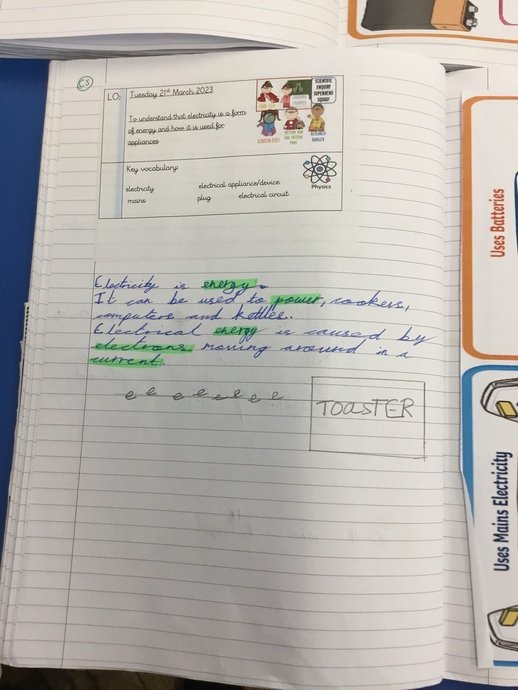 CS
LO: Tuesday 21st March 2023
SCIENTIFIC ENQUIRY SUPERHERO SQUAD
To understand that electricity is a form
of energy and how it is used for
appliances
RESEARCH RANGER
Key vocabulary:
electricity electrical appliance/device
mains plug electrical circuit
Physics
Electricity is energy.
It can be used to power, cookers,
computers and kettles.
Electrical energy is caused by
electrons moving around in a
current.
e e e e e e e e
TOASTER
Uses Batteries
Uses Mains Electricity